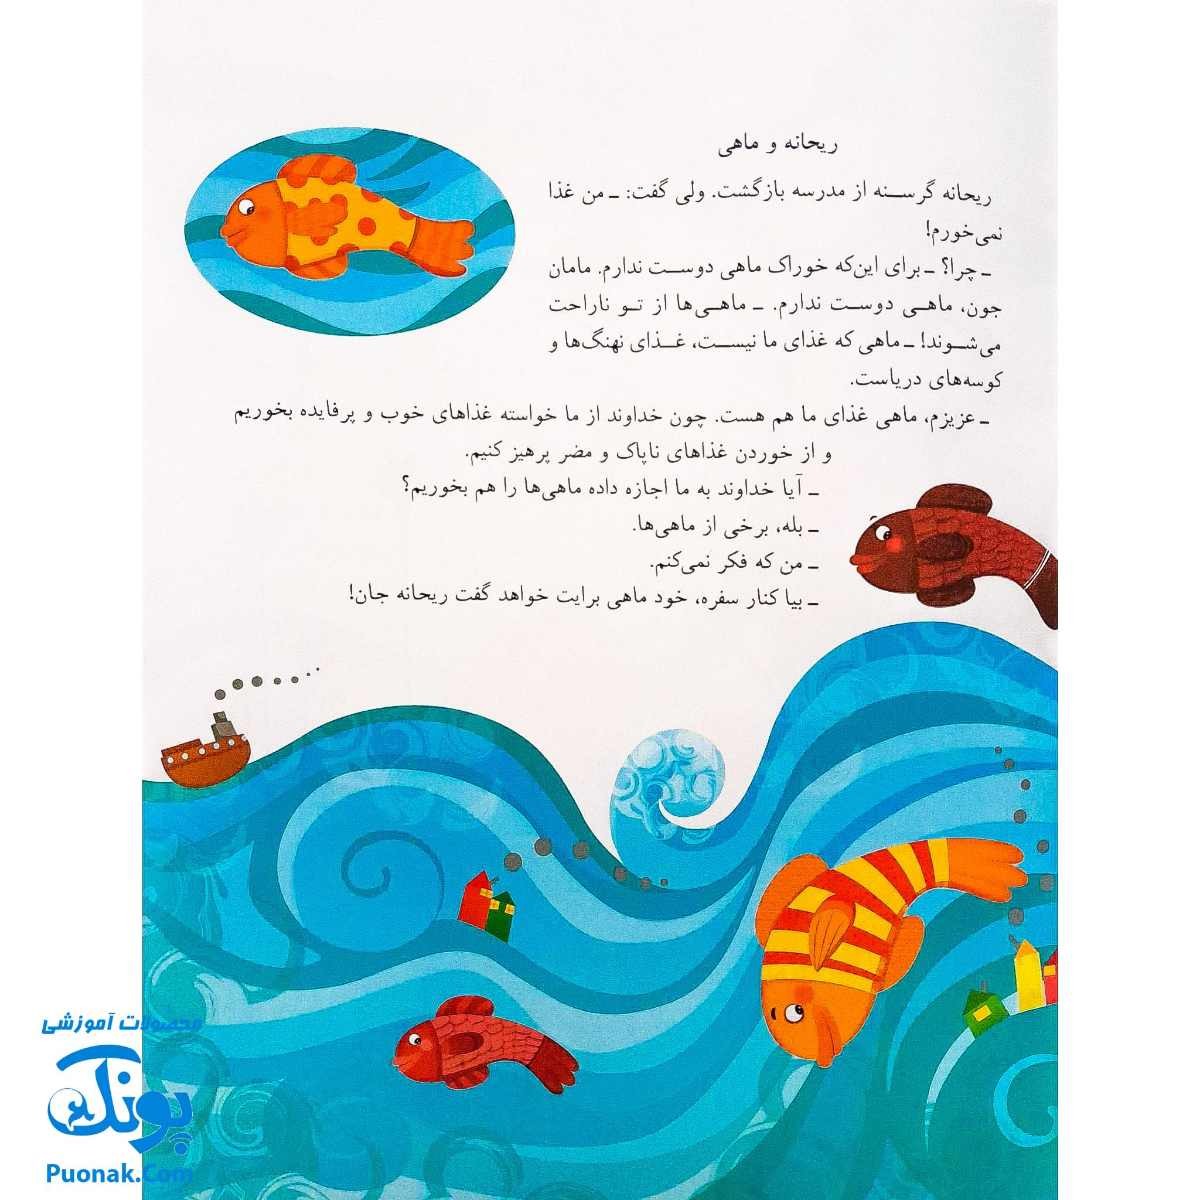 ریحانه و ماهی
ریحانه گرسنه از مدرسه بازگشت. ولی گفت: ـ من غذا
نمی‌خورم!
ـ چرا؟ ـ برای این‌که خوراک ماهی دوست ندارم. مامان
جون، ماهی دوست ندارم. ـ ماهی‌ها از تو ناراحت
می‌شوند! ـ ماهی که غذای ما نیست، غذای نهنگ‌ها و
کوسه‌های دریاست.
ـ عزیزم، ماهی غذای ما هم هست. چون خداوند از ما خواسته غذاهای خوب و پرفایده بخوریم
و از خوردن غذاهای ناپاک و مضر پرهیز کنیم.
ـ آیا خداوند به ما اجازه داده ماهی‌ها را هم بخوریم؟
ـ بله، برخی از ماهی‌ها.
ـ من که فکر نمی‌کنم.
ـ بیا کنار سفره، خود ماهی برایت خواهد گفت ریحانه جان!
محصولات آموزشی
پونک
Puonak.Com